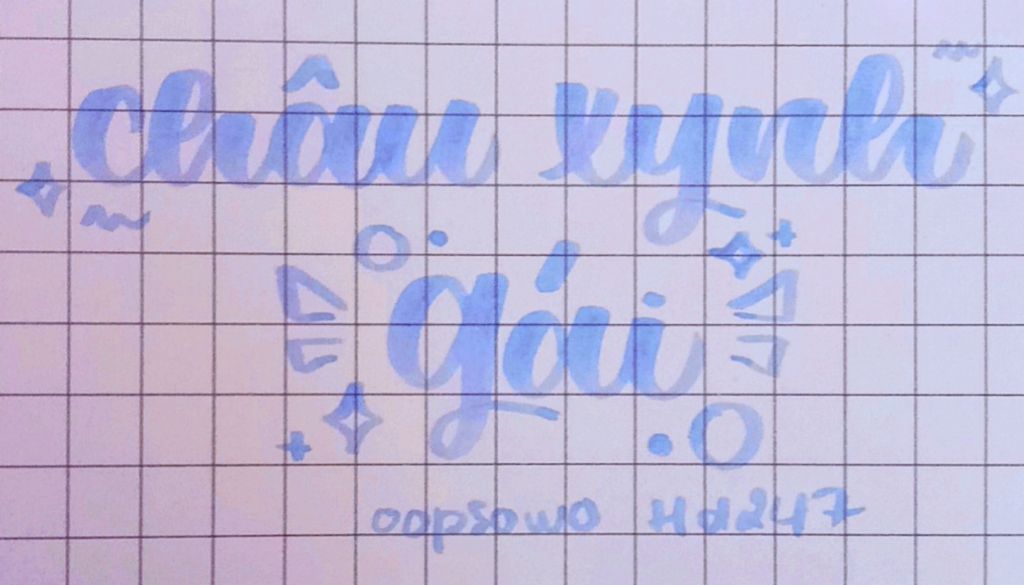 châu xynh
gái
oopsowo Hd247